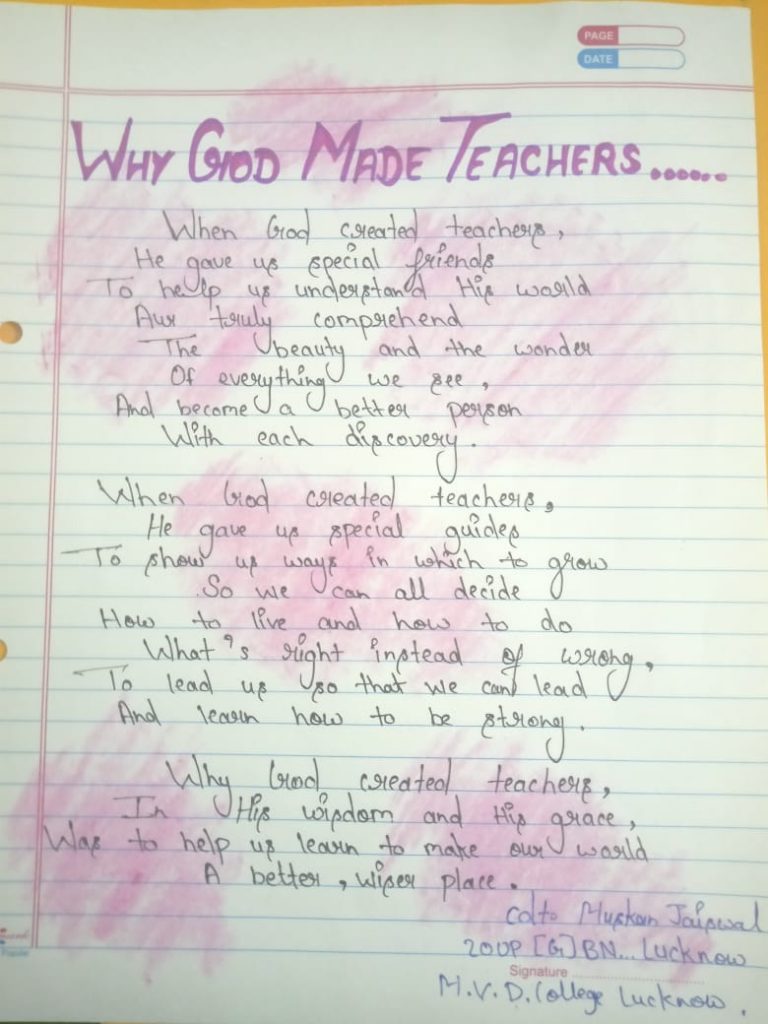 PAGE
DATE
WHY GOD MADE TEACHERS......
When God created teachers,
He gave us special friends
To help us understand His world
Aur truly comprehend
The beauty and the wonder
Of everything we see,
And become a better person
With each discovery.
When God created teachers,
He gave us special guides
To show us ways in which to grow
So we can all decide
How to live and how to do
What's right instead of wrong,
To lead us so that we can lead
And learn how to be strong.
Why God created teachers,
In His wisdom and His grace,
Was to help us learn to make our world
A better, wiser place.
Cdto Muskan Jaiswal
20UP [G] BN... Lucknow
Signature
M.V.D. College Lucknow.